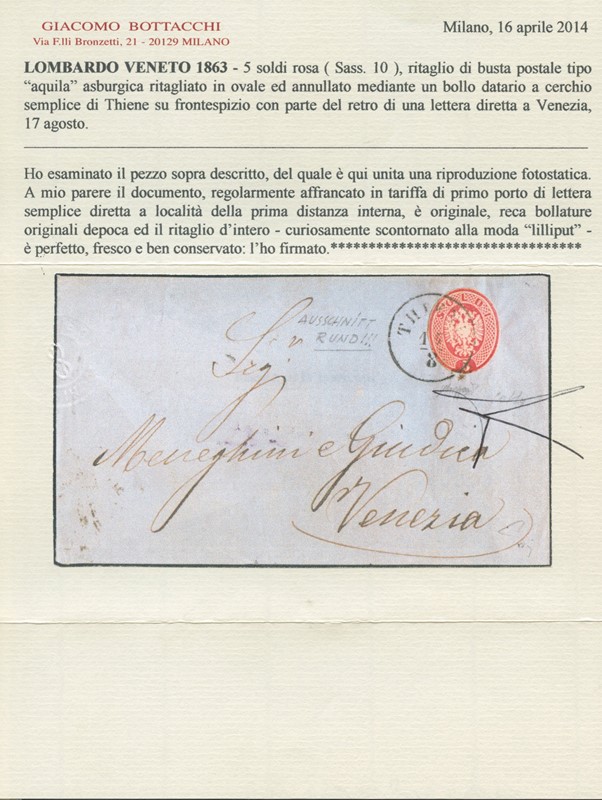 GIACOMO BOTTACCHI
Via F.lli Bronzetti, 21 - 20129 MILANO
Milano, 16 aprile 2014
LOMBARDO VENETO 1863 - 5 soldi rosa ( Sass. 10 ), ritaglio di busta postale tipo
“aquila” asburgica ritagliato in ovale ed annullato mediante un bollo datario a cerchio
semplice di Thiene su frontespizio con parte del retro di una lettera diretta a Venezia,
17 agosto.
Ho esaminato il pezzo sopra descritto, del quale è qui unita una riproduzione fotostatica.
A mio parere il documento, regolarmente affrancato in tariffa di primo porto di lettera
semplice diretta a località della prima distanza interna, è originale, reca bollature
originali depoca ed il ritaglio d’intero - curiosamente scontornato alla moda “lilliput” -
è perfetto, fresco e ben conservato: l’ho firmato.*********************************
AUSSCHNITT
RUND!!!
THIE
Meneghini e Giudica
Venezia